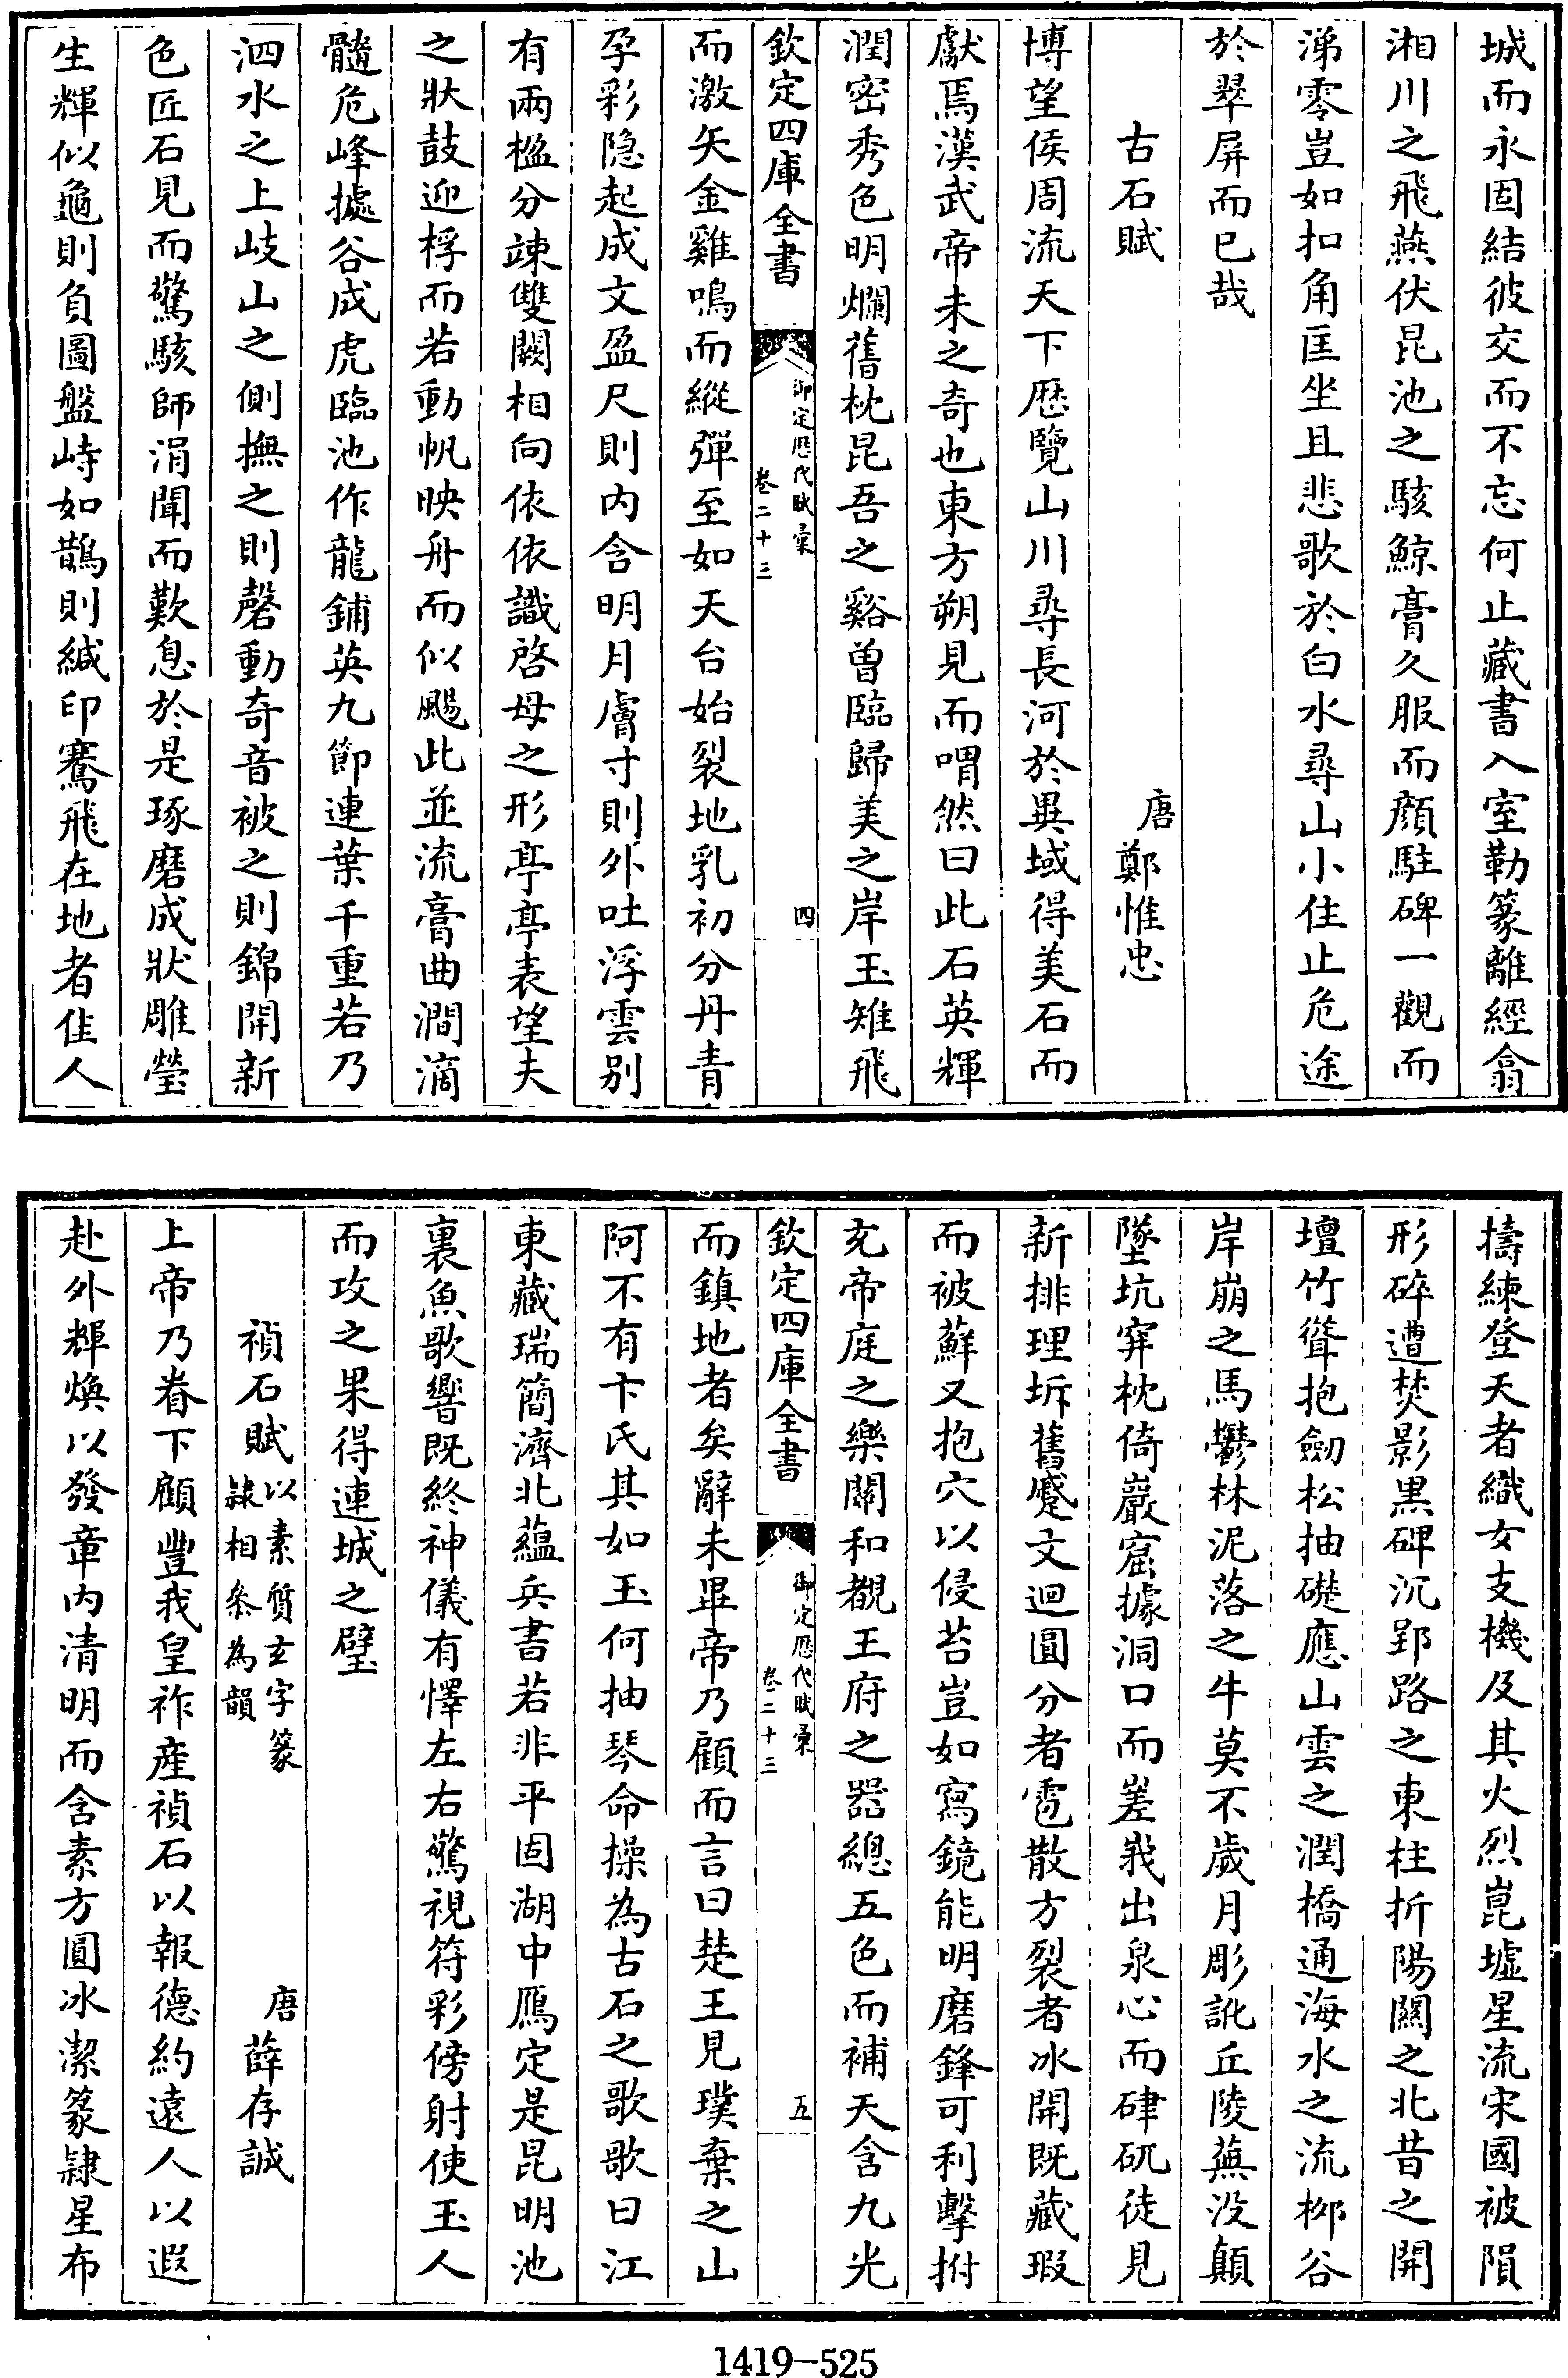 城而永固結彼交而不忘何止藏書入室勒篆離經翕
湘川之飛燕伏昆池之駭鯨膏久服而顏駐碑一觀而
涕零豈如扣角匡坐且悲歌於白水尋山小住止危途
於翠屏而已哉
古石賦 唐鄭惟忠
博望侯周流天下歴覽山川尋長河於異域得美石而
獻焉漢武帝未之奇也東方朔見而喟然曰此石英輝
潤密秀色明爛舊枕昆吾之谿曾臨歸美之岸玉雉飛
欽定四庫全書 御定歴代賦彙 卷二十三 四
而激矢金雞鳴而縱彈至如天台始裂地乳初分丹青
孕彩隐起成文盈尺則内含明月膚寸則外吐浮雲别
有兩楹分竦雙闕相向依依識啓母之形亭亭表望夫
之狀鼓迎桴而若動帆映舟而似颺此並流膏曲澗滴
髓危峰據谷成虎臨池作龍鋪英九節連葉千重若乃
泗水之上岐山之側撫之則磬動奇音被之則錦開新
色匠石見而驚駭師涓聞而歎息於是琢磨成狀雕瑩
生輝似龜則負圖盤峙如鵲則緘印騫飛在地者隹人
擣練登天者織女支機及其火烈崑墟星流宋國被隕
形碎遭焚影黒碑沉郢路之東柱折陽關之北昔之開
壇竹聳抱劒松抽礎應山雲之潤橋通海水之流柳谷
岸崩之馬鬱林泥落之牛莫不歲月彫訛丘陵蕪没顛
墜坑穽枕倚巖窟據洞口而嵳峩出泉心而硉矹徒見
新排理坼舊蹙文迴圓分者雹散方裂者冰開既藏瑕
而被蘚又抱穴以侵苔豈如寫鏡能明磨鋒可利擊拊
充帝庭之樂關和覩王府之器總五色而補天含九光
欽定四庫全書 御定歴代賦彙 卷二十三 五
而鎮地者矣辭未畢帝乃顧而言曰楚王見璞棄之山
阿不有卞氏其如玉何抽琴命操為古石之歌歌曰江
東藏瑞簡濟北蘊兵書若非平固湖中鴈定是昆明池
裏魚歌響既終神儀有懌左右驚視符彩傍射使玉人
而攻之果得連城之璧
禎石賦 以素質玄字篆隸相叅為韻 唐薛存誠
上帝乃眷下顧豐我皇祚産禎石以報德約遠人以遐
赴外輝煥以發章内清明而含素方圓冰潔篆隸星布
1419-525